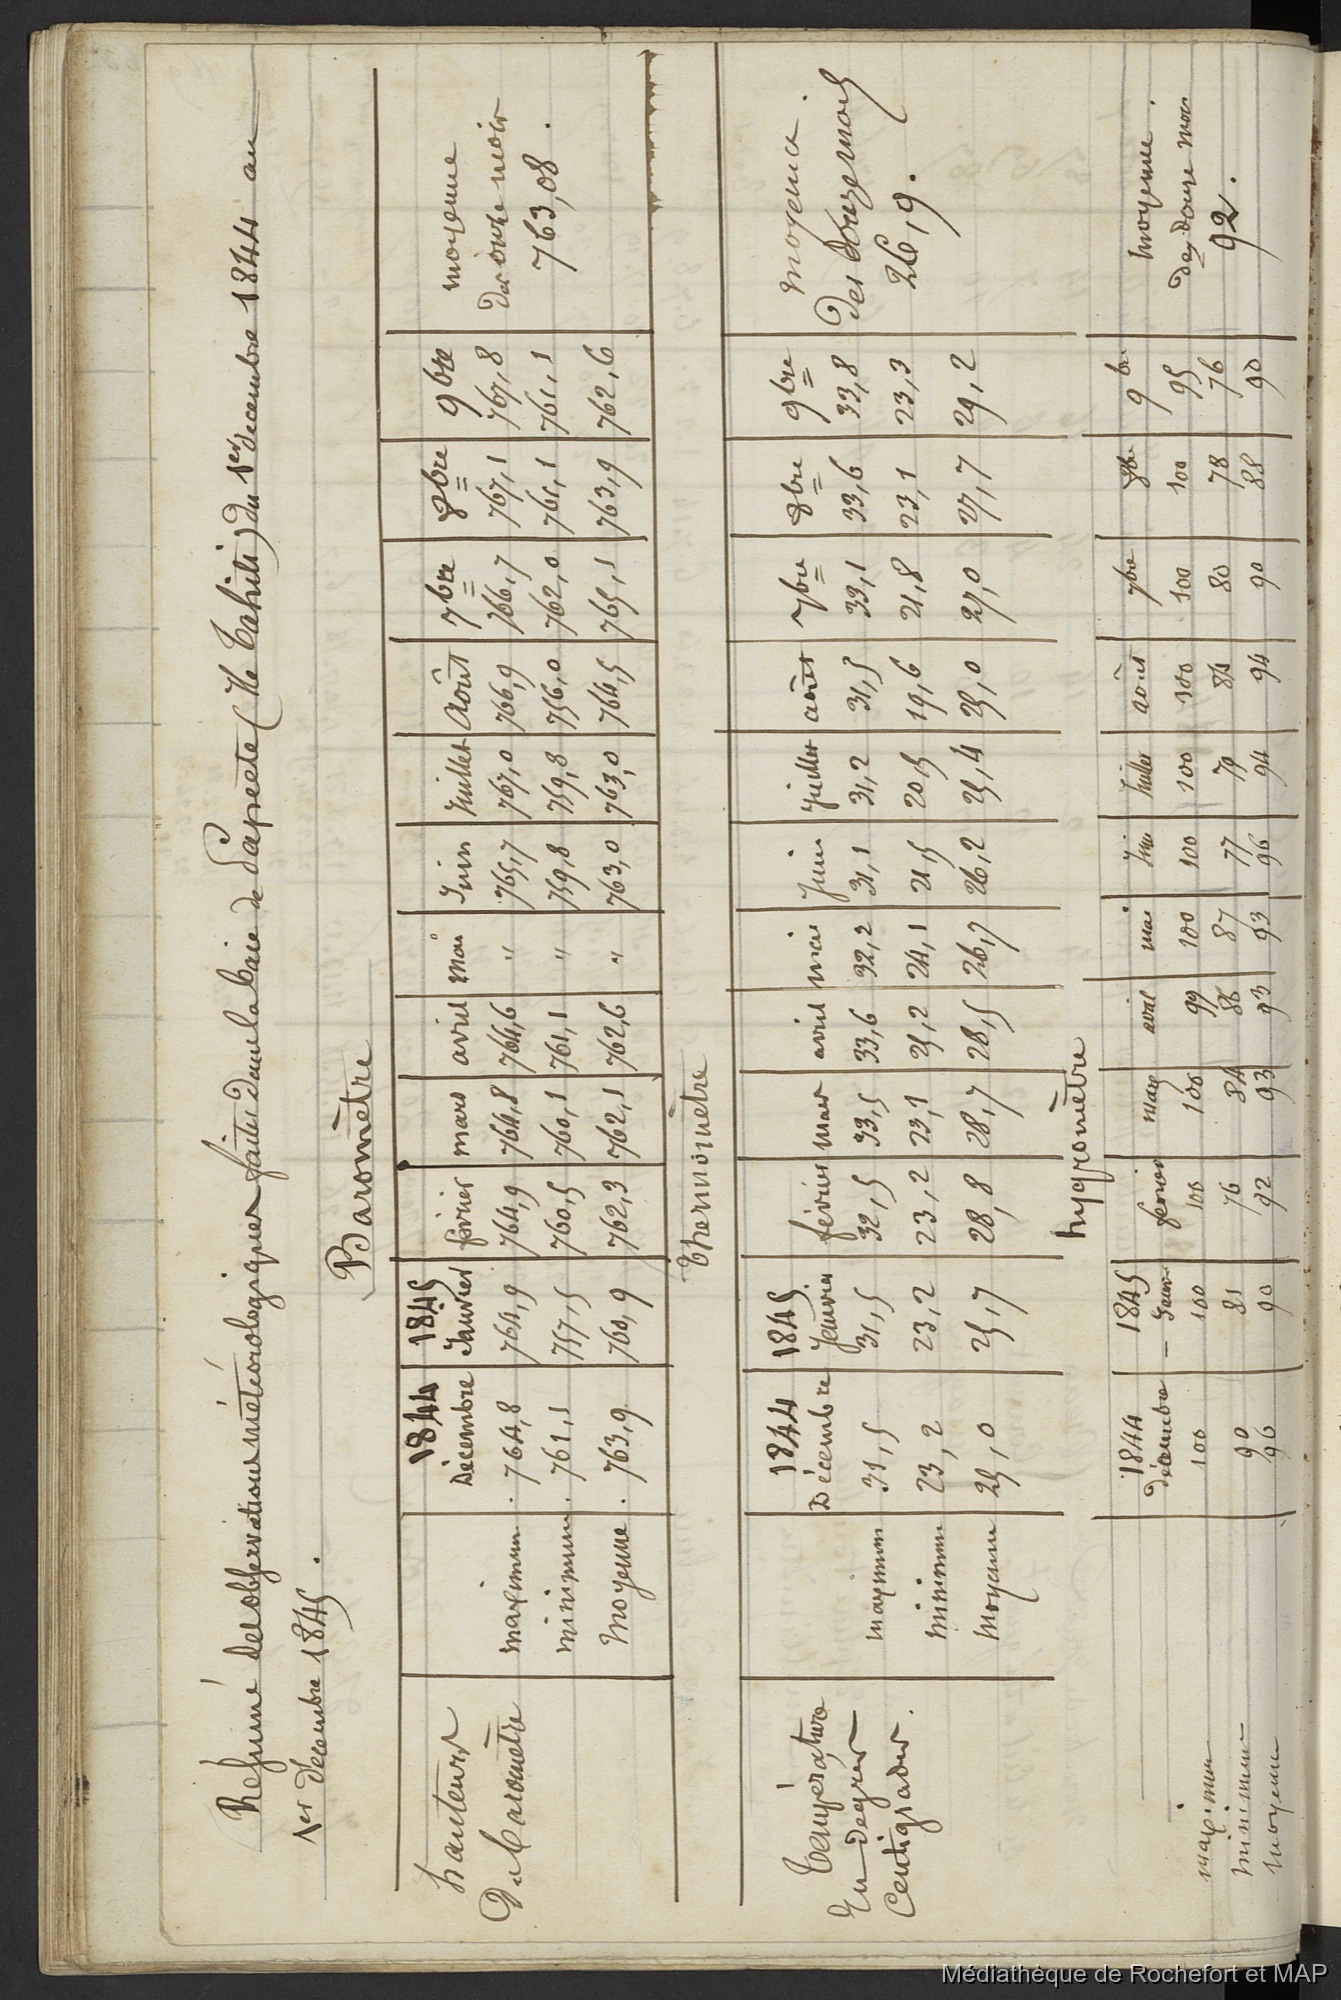 Résumé des observations météorologiques faites dans la baie de Papeete (Ile Tahiti) du 1er décembre 1844 au
1er décembre 1845.
Baromètre
1844 1845
Décembre Janvier février mars avril mai Juin Juillet Août 7bre 8bre 9bre moyenne
hauteur des onze mois
du baromètre maximum 764,8 764,9 764,9 764,8 764,6 " 765,7 767,0 766,9 766,7 767,1 767,8 763,08.
minimum 761,1 757,5 760,5 760,1 761,1 " 759,8 759,8 756,0 762,0 761,1 761,1
moyenne 763,9 760,9 762,3 762,1 762,6 " 763,0 763,0 764,5 765,1 763,9 762,6
Thermomètre
1844 1845
Décembre Janvier février mars avril mai Juin Juillet août 7bre 8bre 9bre moyenne
Température des douze mois
en degrés maximum 31,5 31,5 32,5 33,5 33,6 32,2 31,1 31,2 31,5 33,1 33,6 33,8 26,9.
Centigrades. minimum 23,2 23,2 23,2 23,1 25,2 24,1 21,5 20,5 19,6 21,8 23,1 23,3
moyenne 25,0 25,7 28,8 28,7 28,5 26,7 26,2 25,4 25,0 27,0 27,7 29,2
hygromètre
1844 1845
décembre Janv. février mars avril mai Juin Juillet août 7bre 8bre 9bre moyenne.
maximum 100 100 100 100 99 100 100 100 100 100 100 95 des douze mois
minimum 90 81 76 84 86 87 77 79 84 80 78 76 92.
moyenne 96 90 92 93 93 93 96 94 94 90 88 90
Médiathèque de Rochefort et MAP